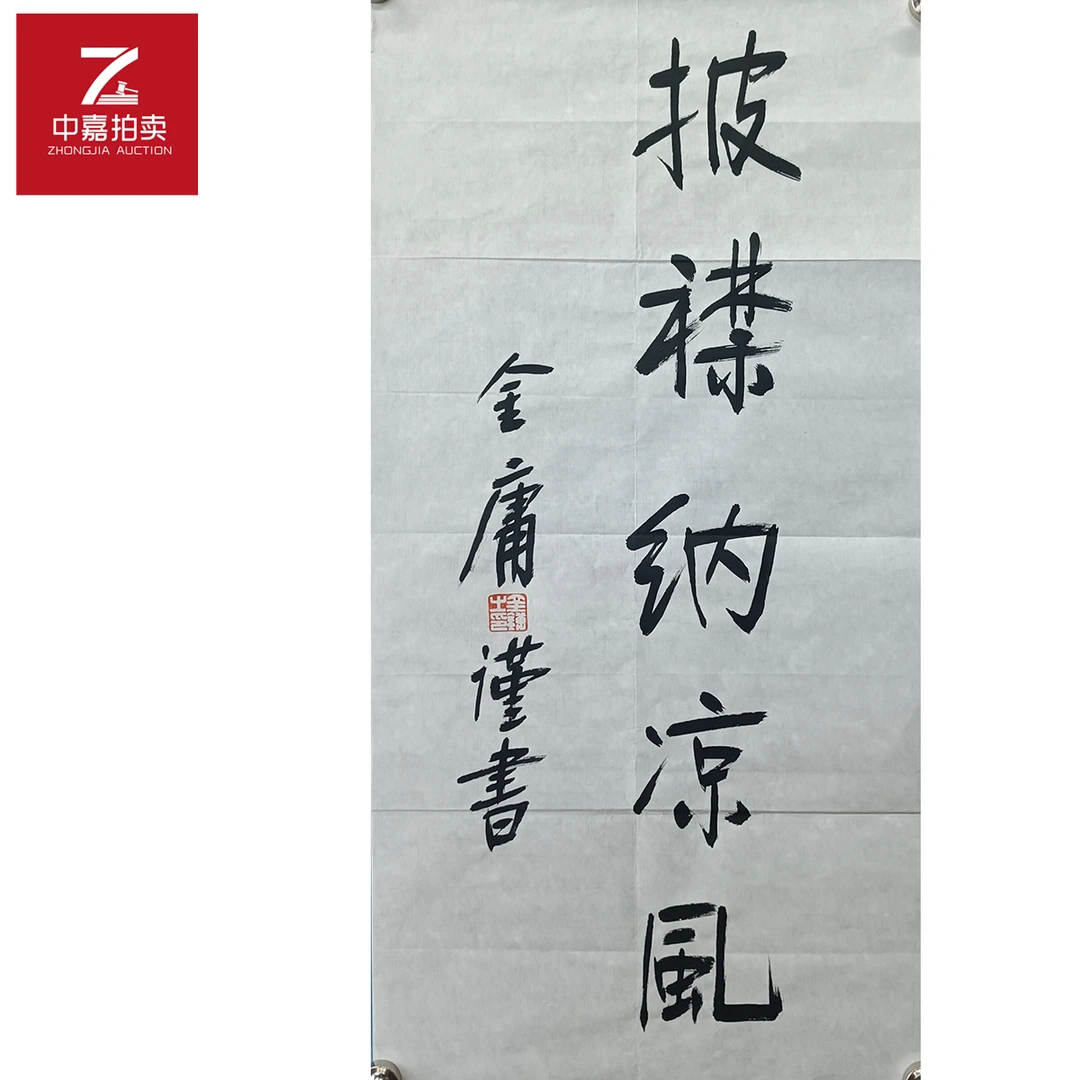 中嘉拍卖
ZHONGJIA AUCTION
披襟纳凉風
金庸
謹書